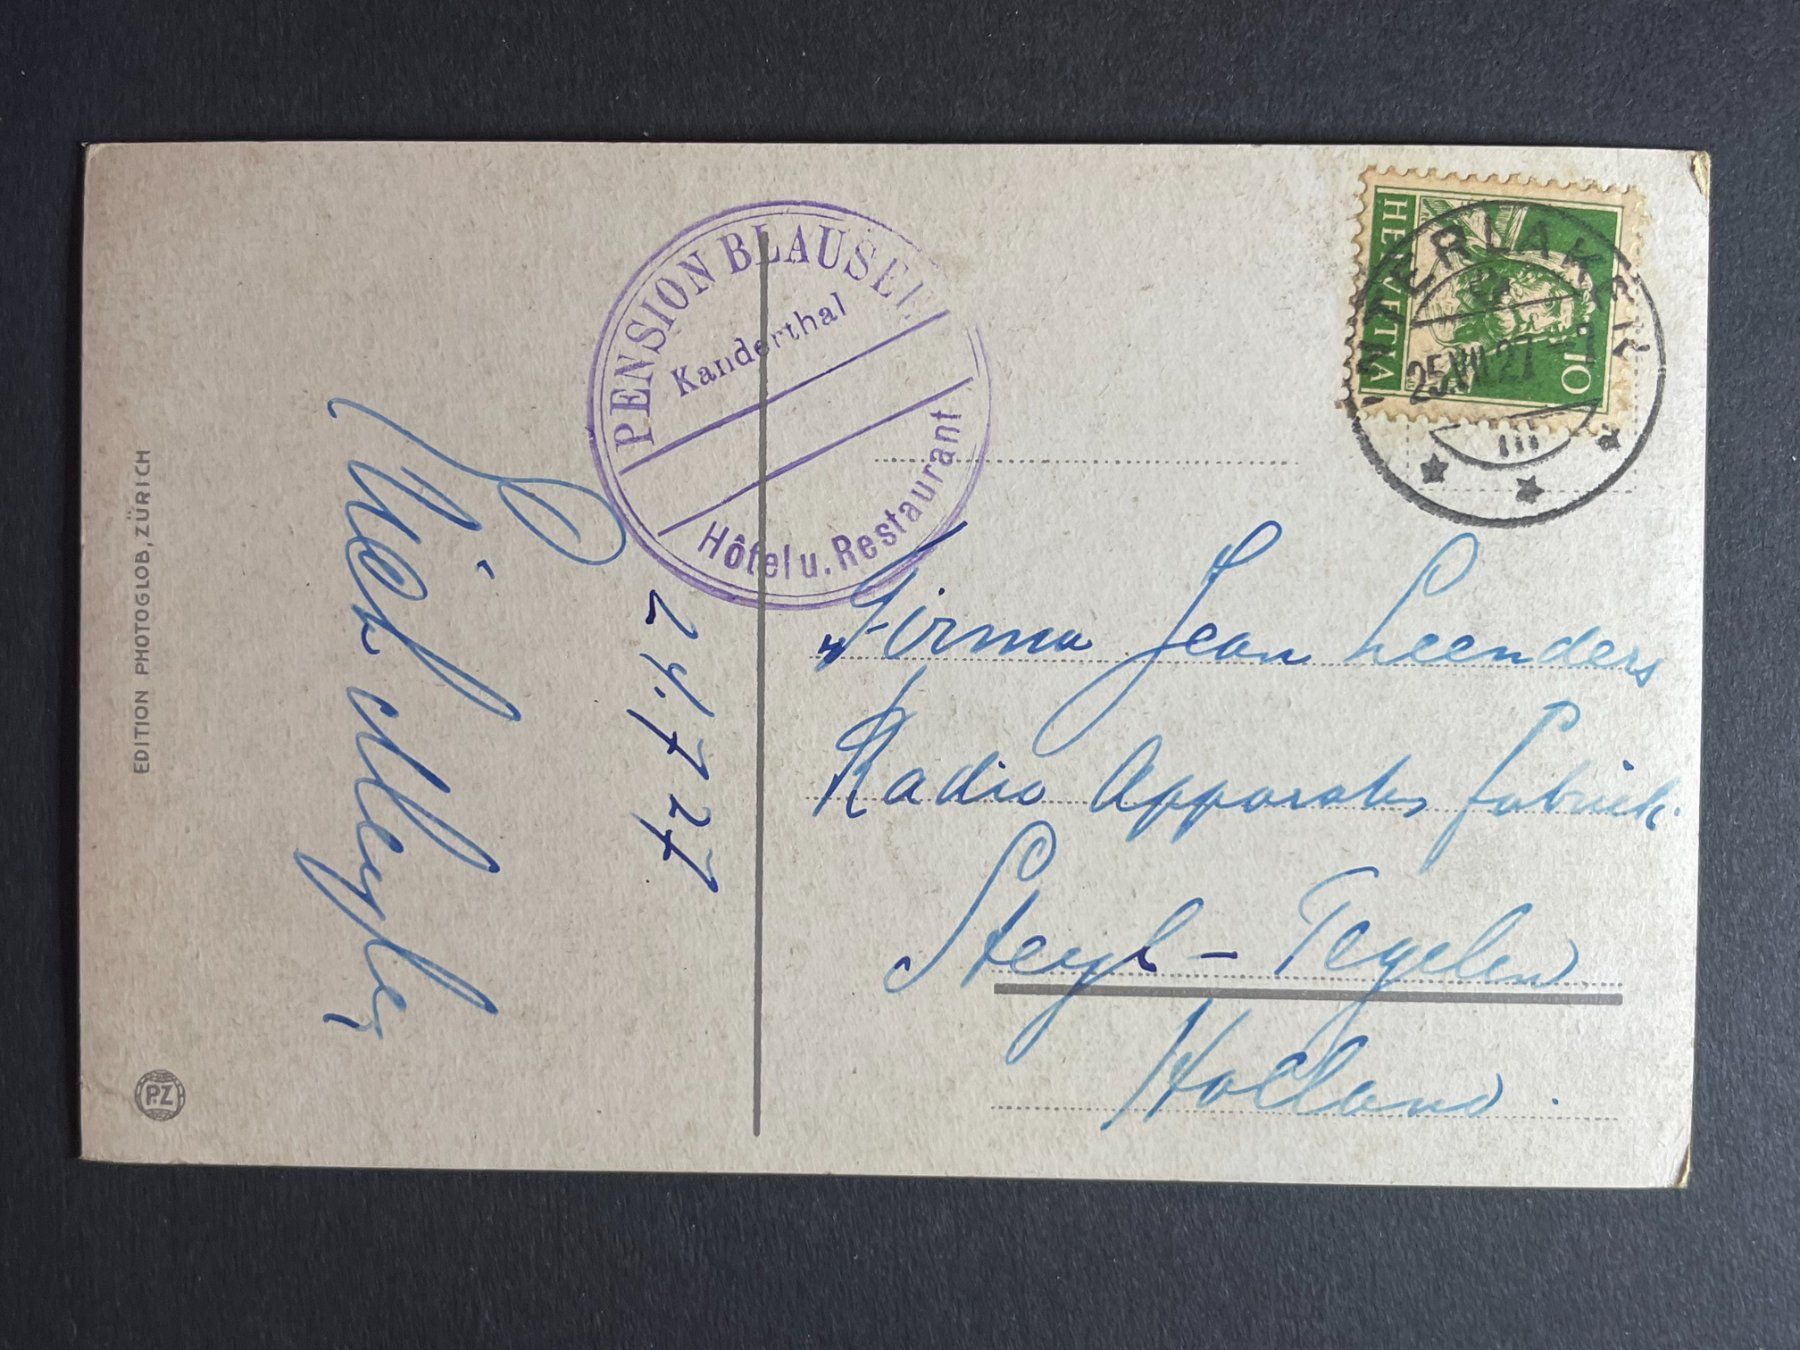 EDITION PHOTOGLOB, ZÜRICH
P.Z
24.7 27
PENSION BLAUSEE
Kanderthal
Hôtel u. Restaurant
HELVETIA
10
INTERLAKEN
25.VII.27
III
Firma Jean Leenders
Radio Apparaten fabriek.
Steyl - Tegelen
Holland.